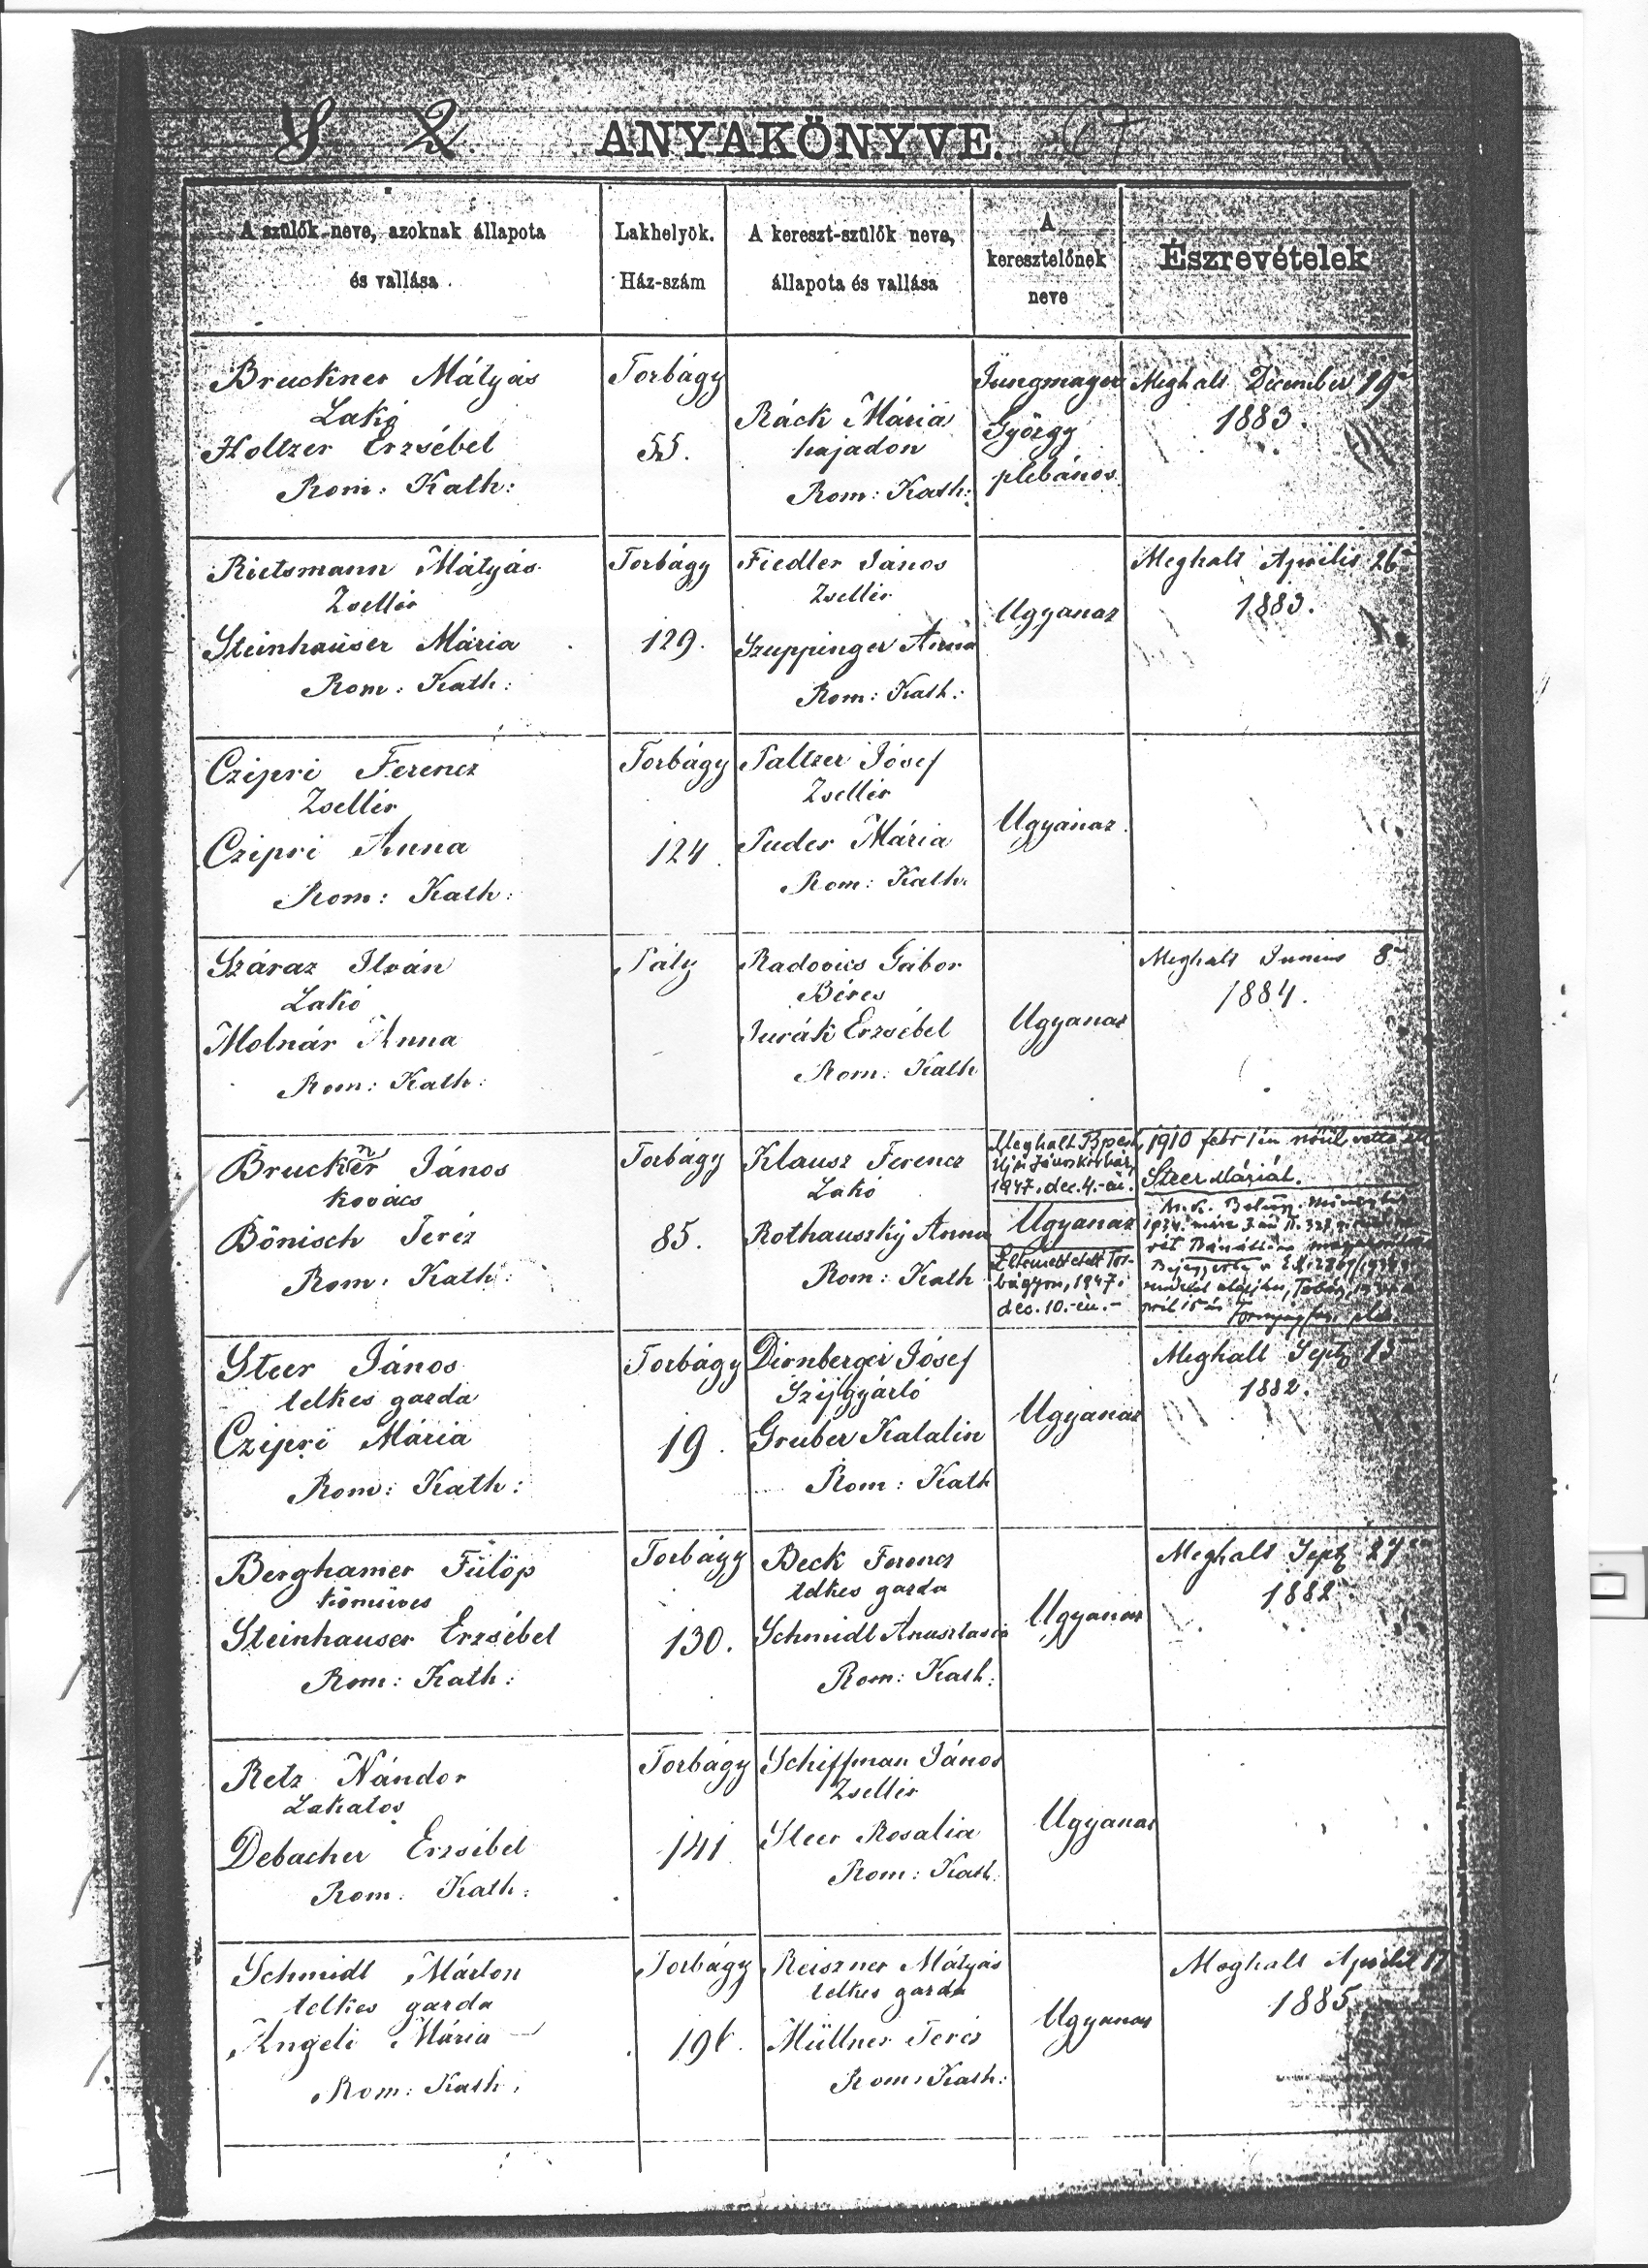 ANYAKÖNYVE. 67
A szülők neve, azoknak állapota
és vallása
Lakhelyök.
Ház-szám
A kereszt-szülők neve,
állapota és vallása
A
keresztelőnek
neve
Észrevételek
Bruckner Mátyás
Lakó
Holtzer Erzsébet
Rom: Kath:
Torbágy
55.
Ráck Mária
hajadon
Rom: Kath:
Jungmayer
György
plébános
Meghalt December 19
1883.
Rietsmann Mátyás
Zsellér
Steinhauser Mária
Rom: Kath:
Torbágy
129.
Fiedler János
Zsellér
Szuppinger Anna
Rom: Kath:
Ugyanaz
Meghalt Április 26
1883.
Czipri Ferencz
Zsellér
Czipri Anna
Rom: Kath:
Torbágy
124.
Paltzer Jósef
Zsellér
Puder Mária
Rom: Kath.
Ugyanaz.
Száraz István
Lakó
Molnár Anna
Rom: Kath:
Páty
Radovics Gábor
Béres
Jurák Erzsébet
Rom: Kath
Ugyanaz
Meghalt Junius 8
1884.
Bruckner János
kovács
Bönisch Teréz
Rom: Kath:
Torbágy
85.
Klausz Ferencz
Lakó
Rothauszky Anna
Rom: Kath
Meghalt Bpest,
Uj Jánoskórház,
1947. dec. 4.-én.
Ugyanaz
Eltemettetett Tor-
bágyon, 1947.
dec. 10.-én.-
1910 febr 1én nőül vette
Steer Máriát.
1934. márc
rét Bánáti
rendelet alapján,
Steer János
telkes gazda
Czipri Mária
Rom: Kath:
Torbágy
19.
Dirnberger Jósef
Szijgyártó
Gruber Katalin
Rom: Kath
Ugyanaz
Meghalt Sept 15
1882.
Berghamer Fülöp
kömüves
Steinhauser Erzsébet
Rom: Kath:
Torbágy
130.
Beck Ferencz
telkes gazda
Schmidt Anasztasia
Rom: Kath:
Ugyanaz
Meghalt Sept 27
1882
Retz Nándor
Lakatos
Debacher Erzsébet
Rom: Kath:
Torbágy
141
Schiffman János
Zsellér
Steer Rosalia
Rom: Kath.
Ugyanaz
Schmidt Márton
telkes gazda
Angeli Mária
Rom: Kath.
Torbágy
Reiszner Mátyás
telkes gazda
Müllner Teréz
Rom: Kath:
Ugyanaz
Meghalt Április 17
1885